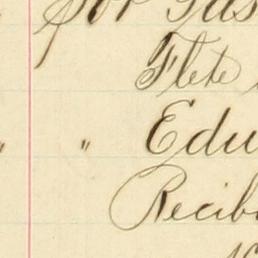 por Gas
Flete
" " Edu
Recib